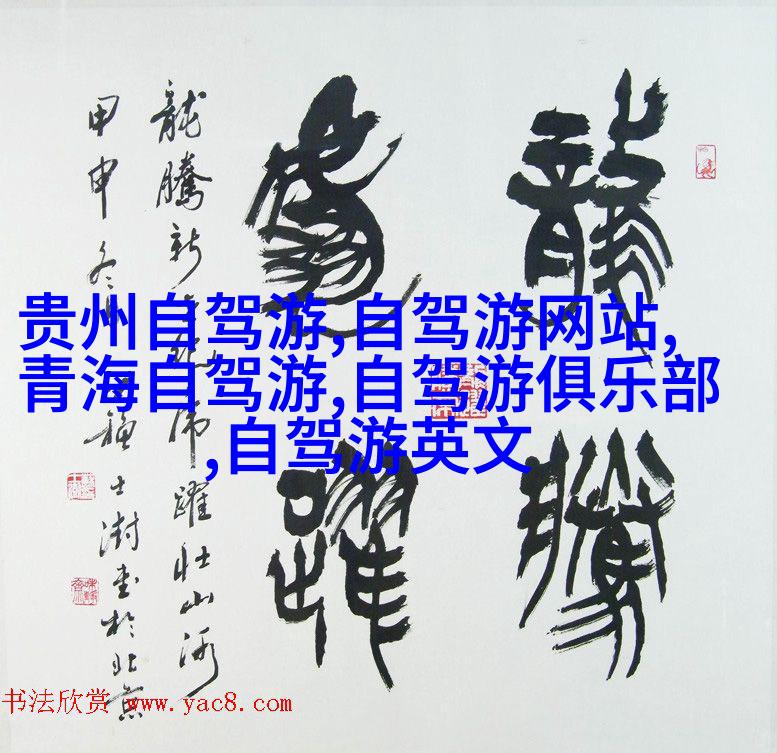 龍騰
虎躍
龍騰新
躍壯山河
甲申冬
士澍書於北京
贵州自驾游,自驾游网站,
青海自驾游,自驾游俱乐部
,自驾游英文
书法欣赏 www.yac8.com